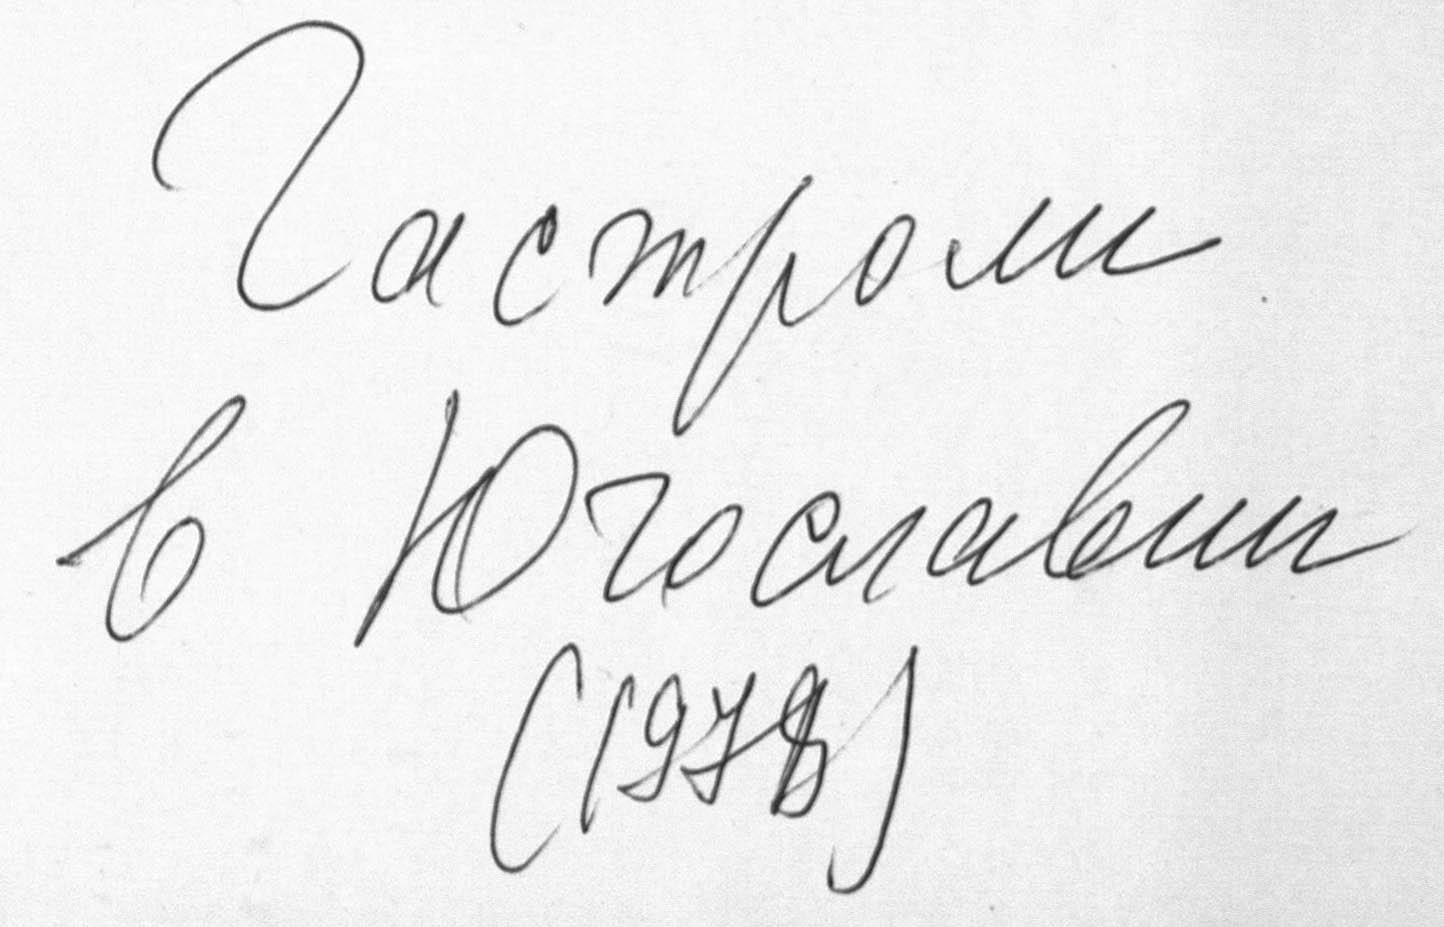 Гастроли
в Югославии
(1978)